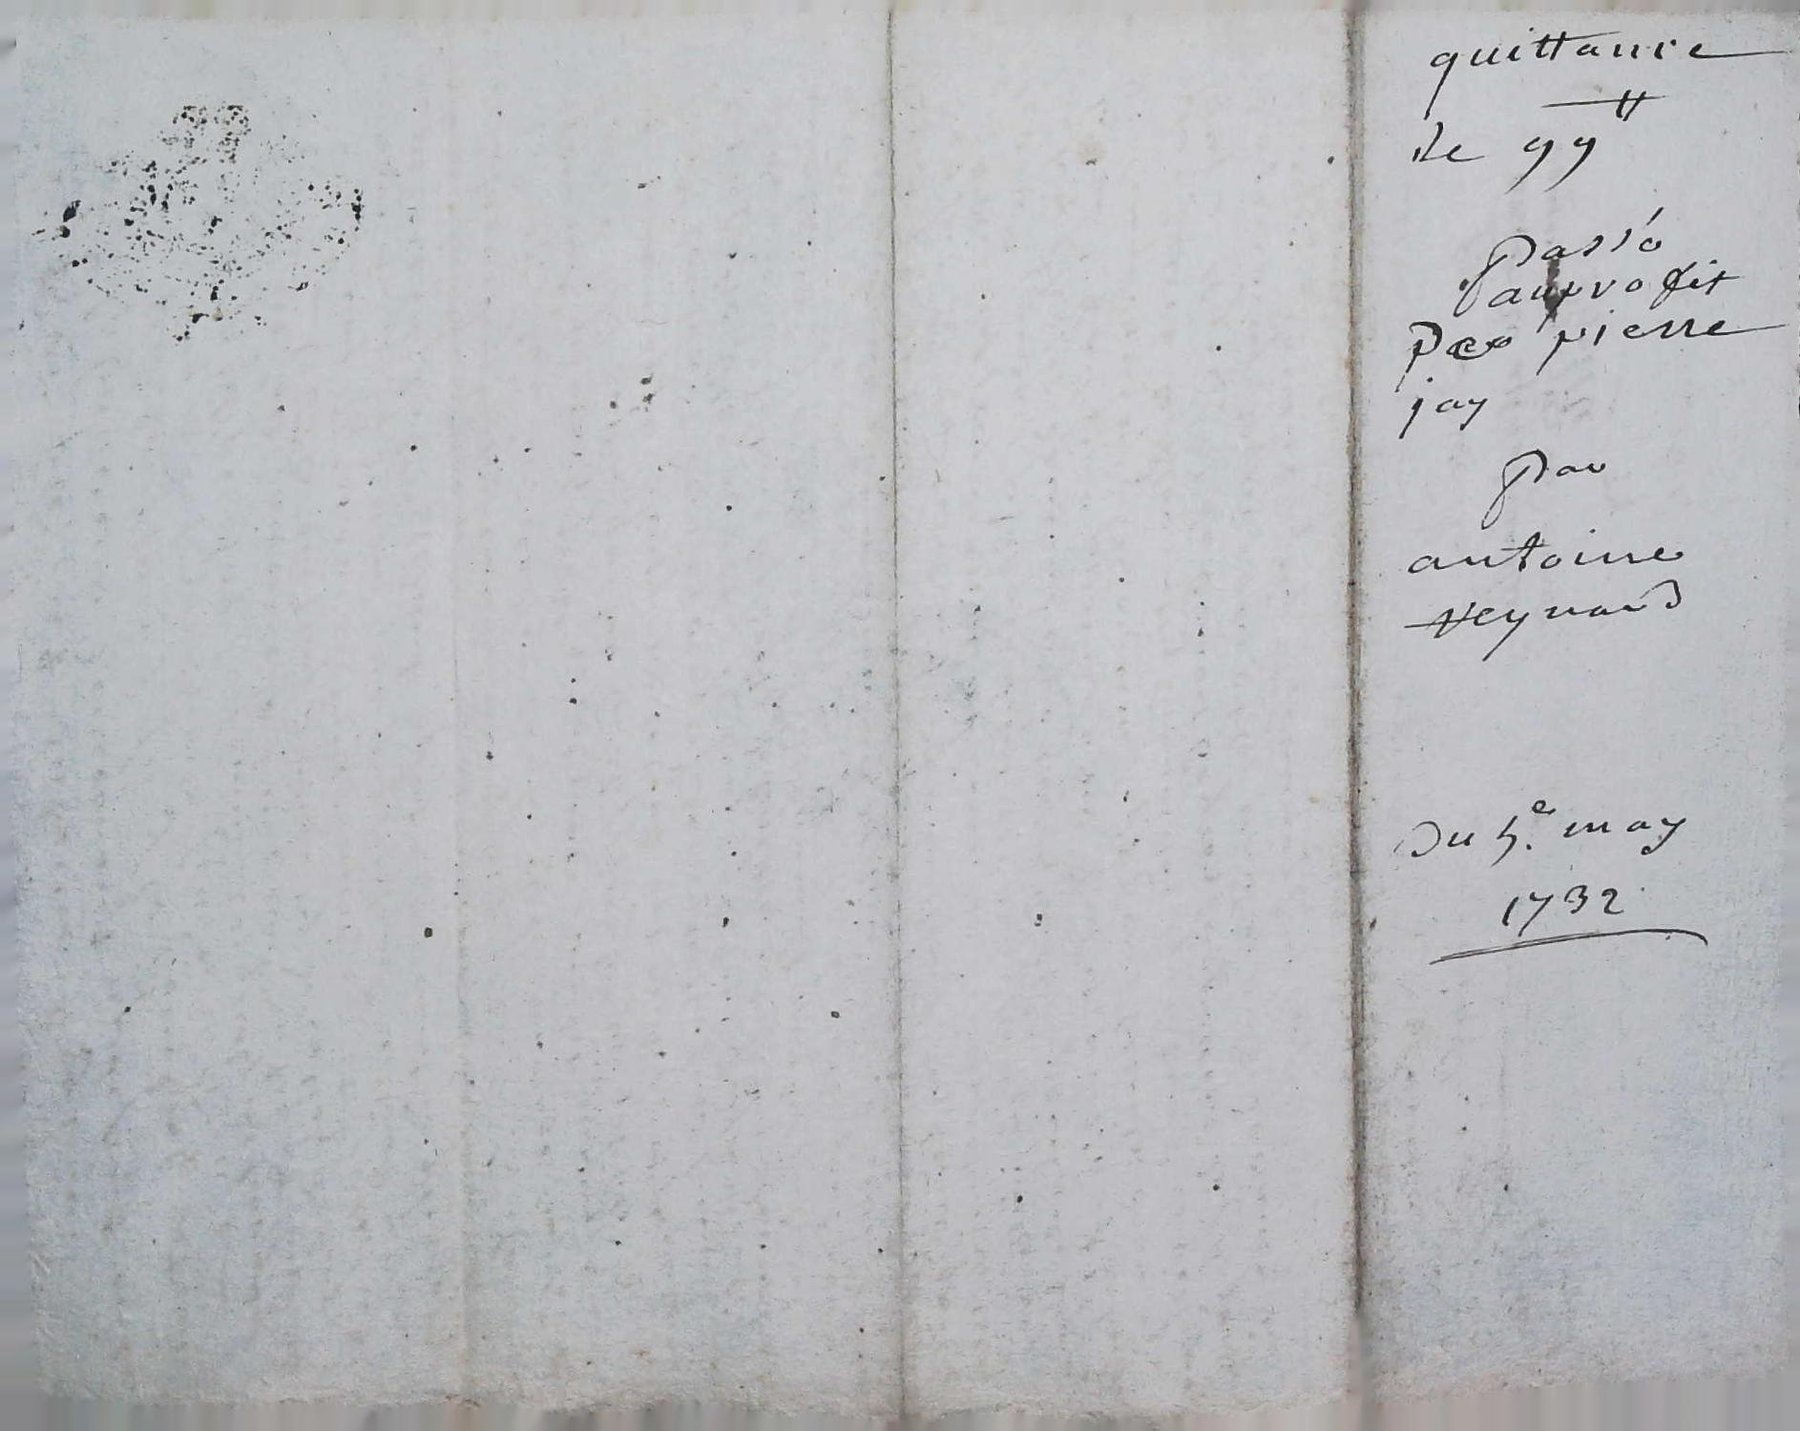 quittance
de 99 ₶
passé
au profit
de pierre
jay
par
antoine
Reynard
Du 5.e may
1732